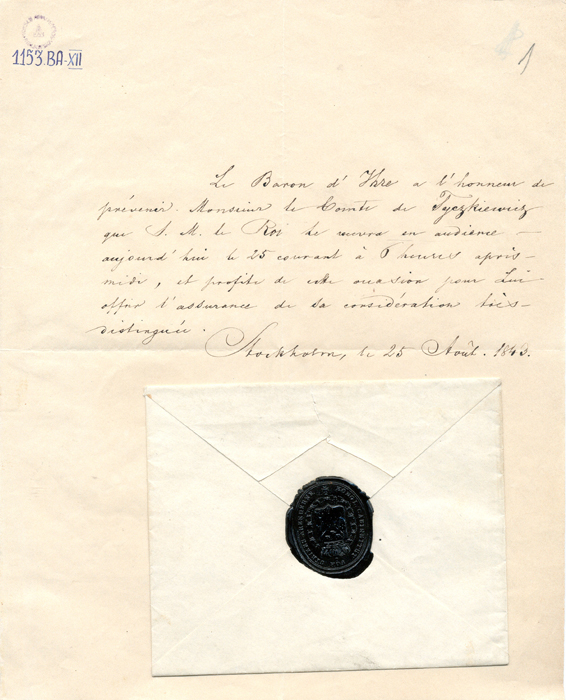 1153.BA-XII
1
Le Baron d' Ihre a l'honneur de
prévenir Monsieur le Comte de Tyczkiewicz
que S. M. le Roi Le recevra en audience —
aujourd'hui le 25 courant à 6 heures après-
midi, et profite de cette occasion pour Lui
offrir l'assurance de sa considération très-
distinguée.
Stockholm, le 25 Août. 1843.